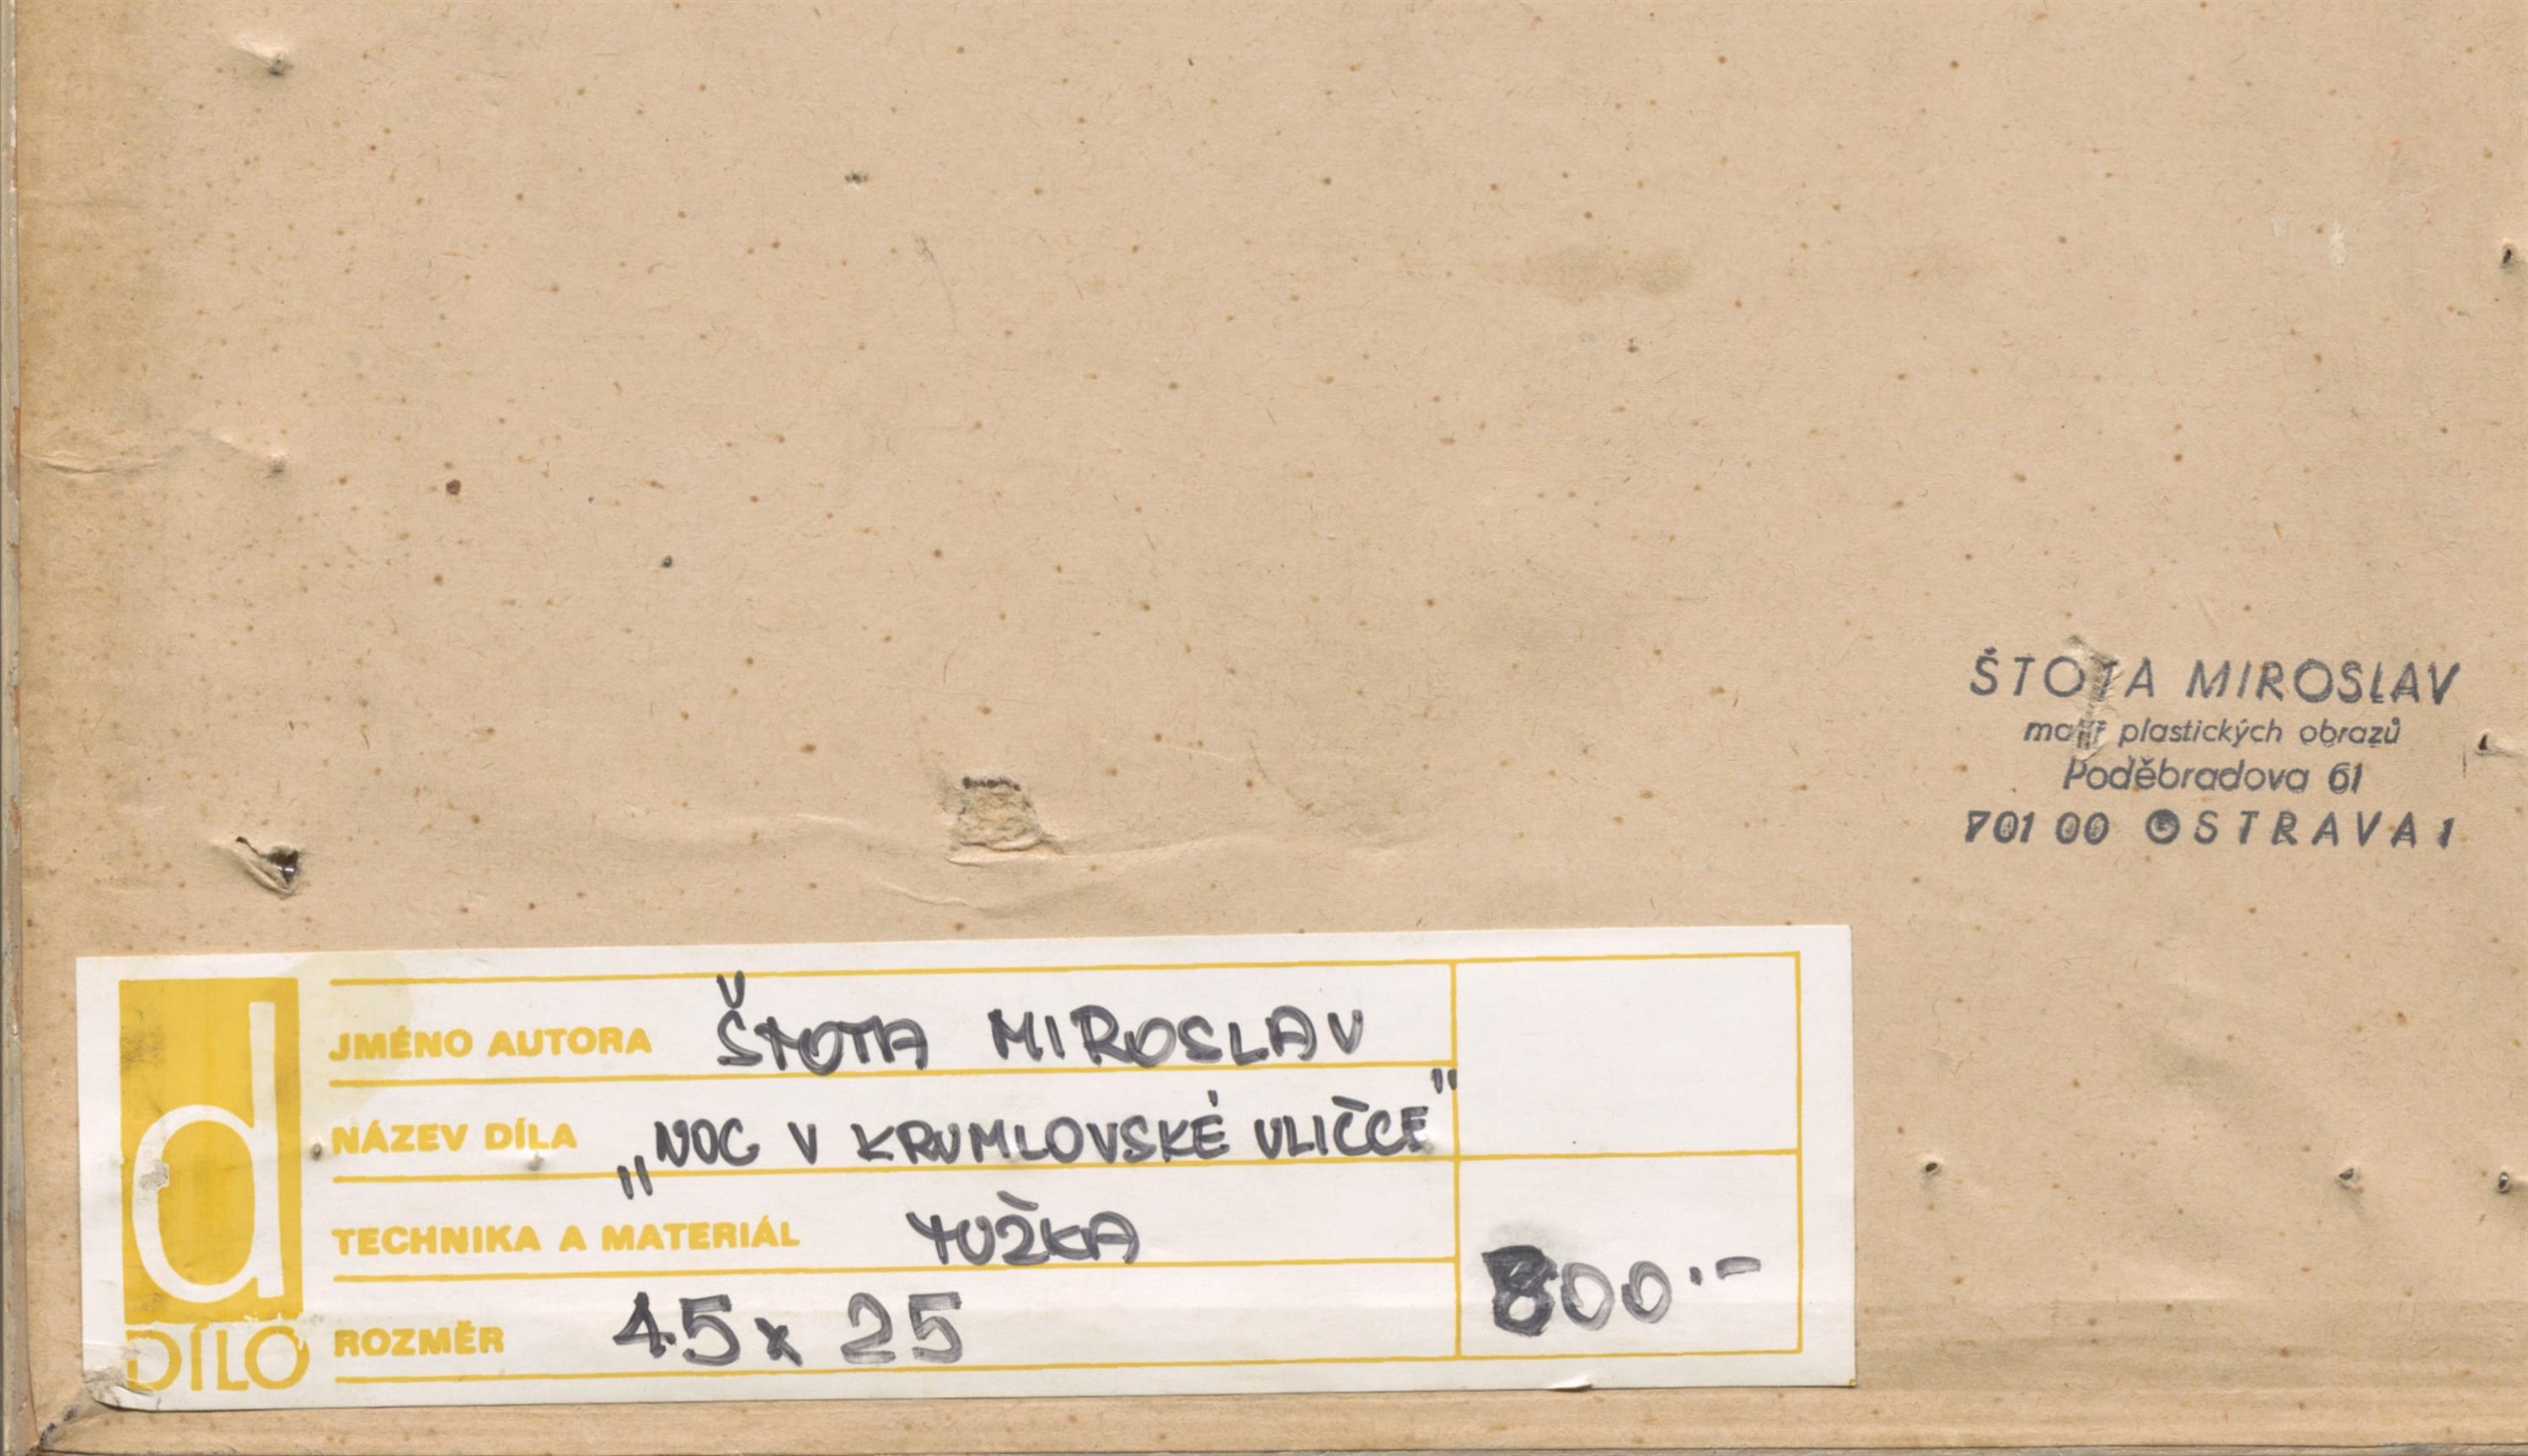 ŠTOTA MIROSLAV
malíř plastických obrazů
Poděbradova 61
701 00 OSTRAVA 1
d
DÍLO
JMÉNO AUTORA ŠTOTA MIROSLAV
NÁZEV DÍLA „NOC V KRUMLOVSKÉ ULIČCE"
TECHNIKA A MATERIÁL TUŽKA
ROZMĚR 45 x 25
800.-